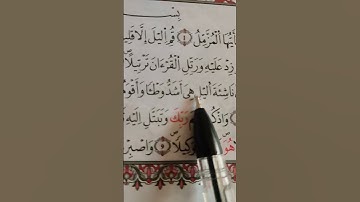 بِسْـ
أَيُّهَا ٱلْمُزَّمِّلُ ١ قُمِ ٱلَّيْلَ إِلَّا قَلِيـ
زِدْ عَلَيْهِ وَرَتِّلِ ٱلْقُرْءَانَ تَرْتِيلًا
نَاشِئَةَ ٱلَّيْلِ هِىَ أَشَدُّ وَطْـًٔا وَأَقْوَمُ
وَٱذْكُـ رَبِّكَ وَتَبَتَّلْ إِلَيْهِ
هُوَ وَكِيلًا ٩ وَٱصْبِرْ